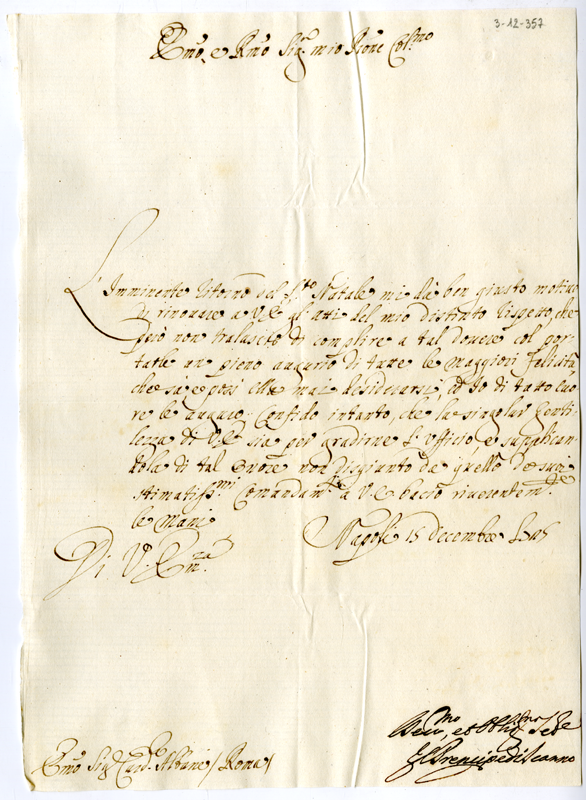 3-12-357
Emo, e Rmo Sig. mio Prone Col.mo
L'Imminente ritorno del S.to Natale mi dà ben giusto motivo
di rinovare a V.E. gl'atti del mio distinto rispetto, che
però non tralascio di complire a tal dovere col por-
tarle un pieno augurio di tutte le maggiori felicità
che sa, e possi ella mai desiderarsi, ed Io di tutto cuo-
re le auguro. Confido intanto, che la singolar genti-
lezza di V.E. sia per gradirne l'ufficio, e supplican-
dola di tal onore non disgiunto da quello de suoi
stimatiss.mi Comandam.ti a V.E. bacio riverentem.te
le mani
Napoli 15 decembre
Di V. Em.za
Devu.mo, et Obblig.mo Ser.e
Il Prencipe di Scanno
Emo Sig.r Card. Albani / Roma /